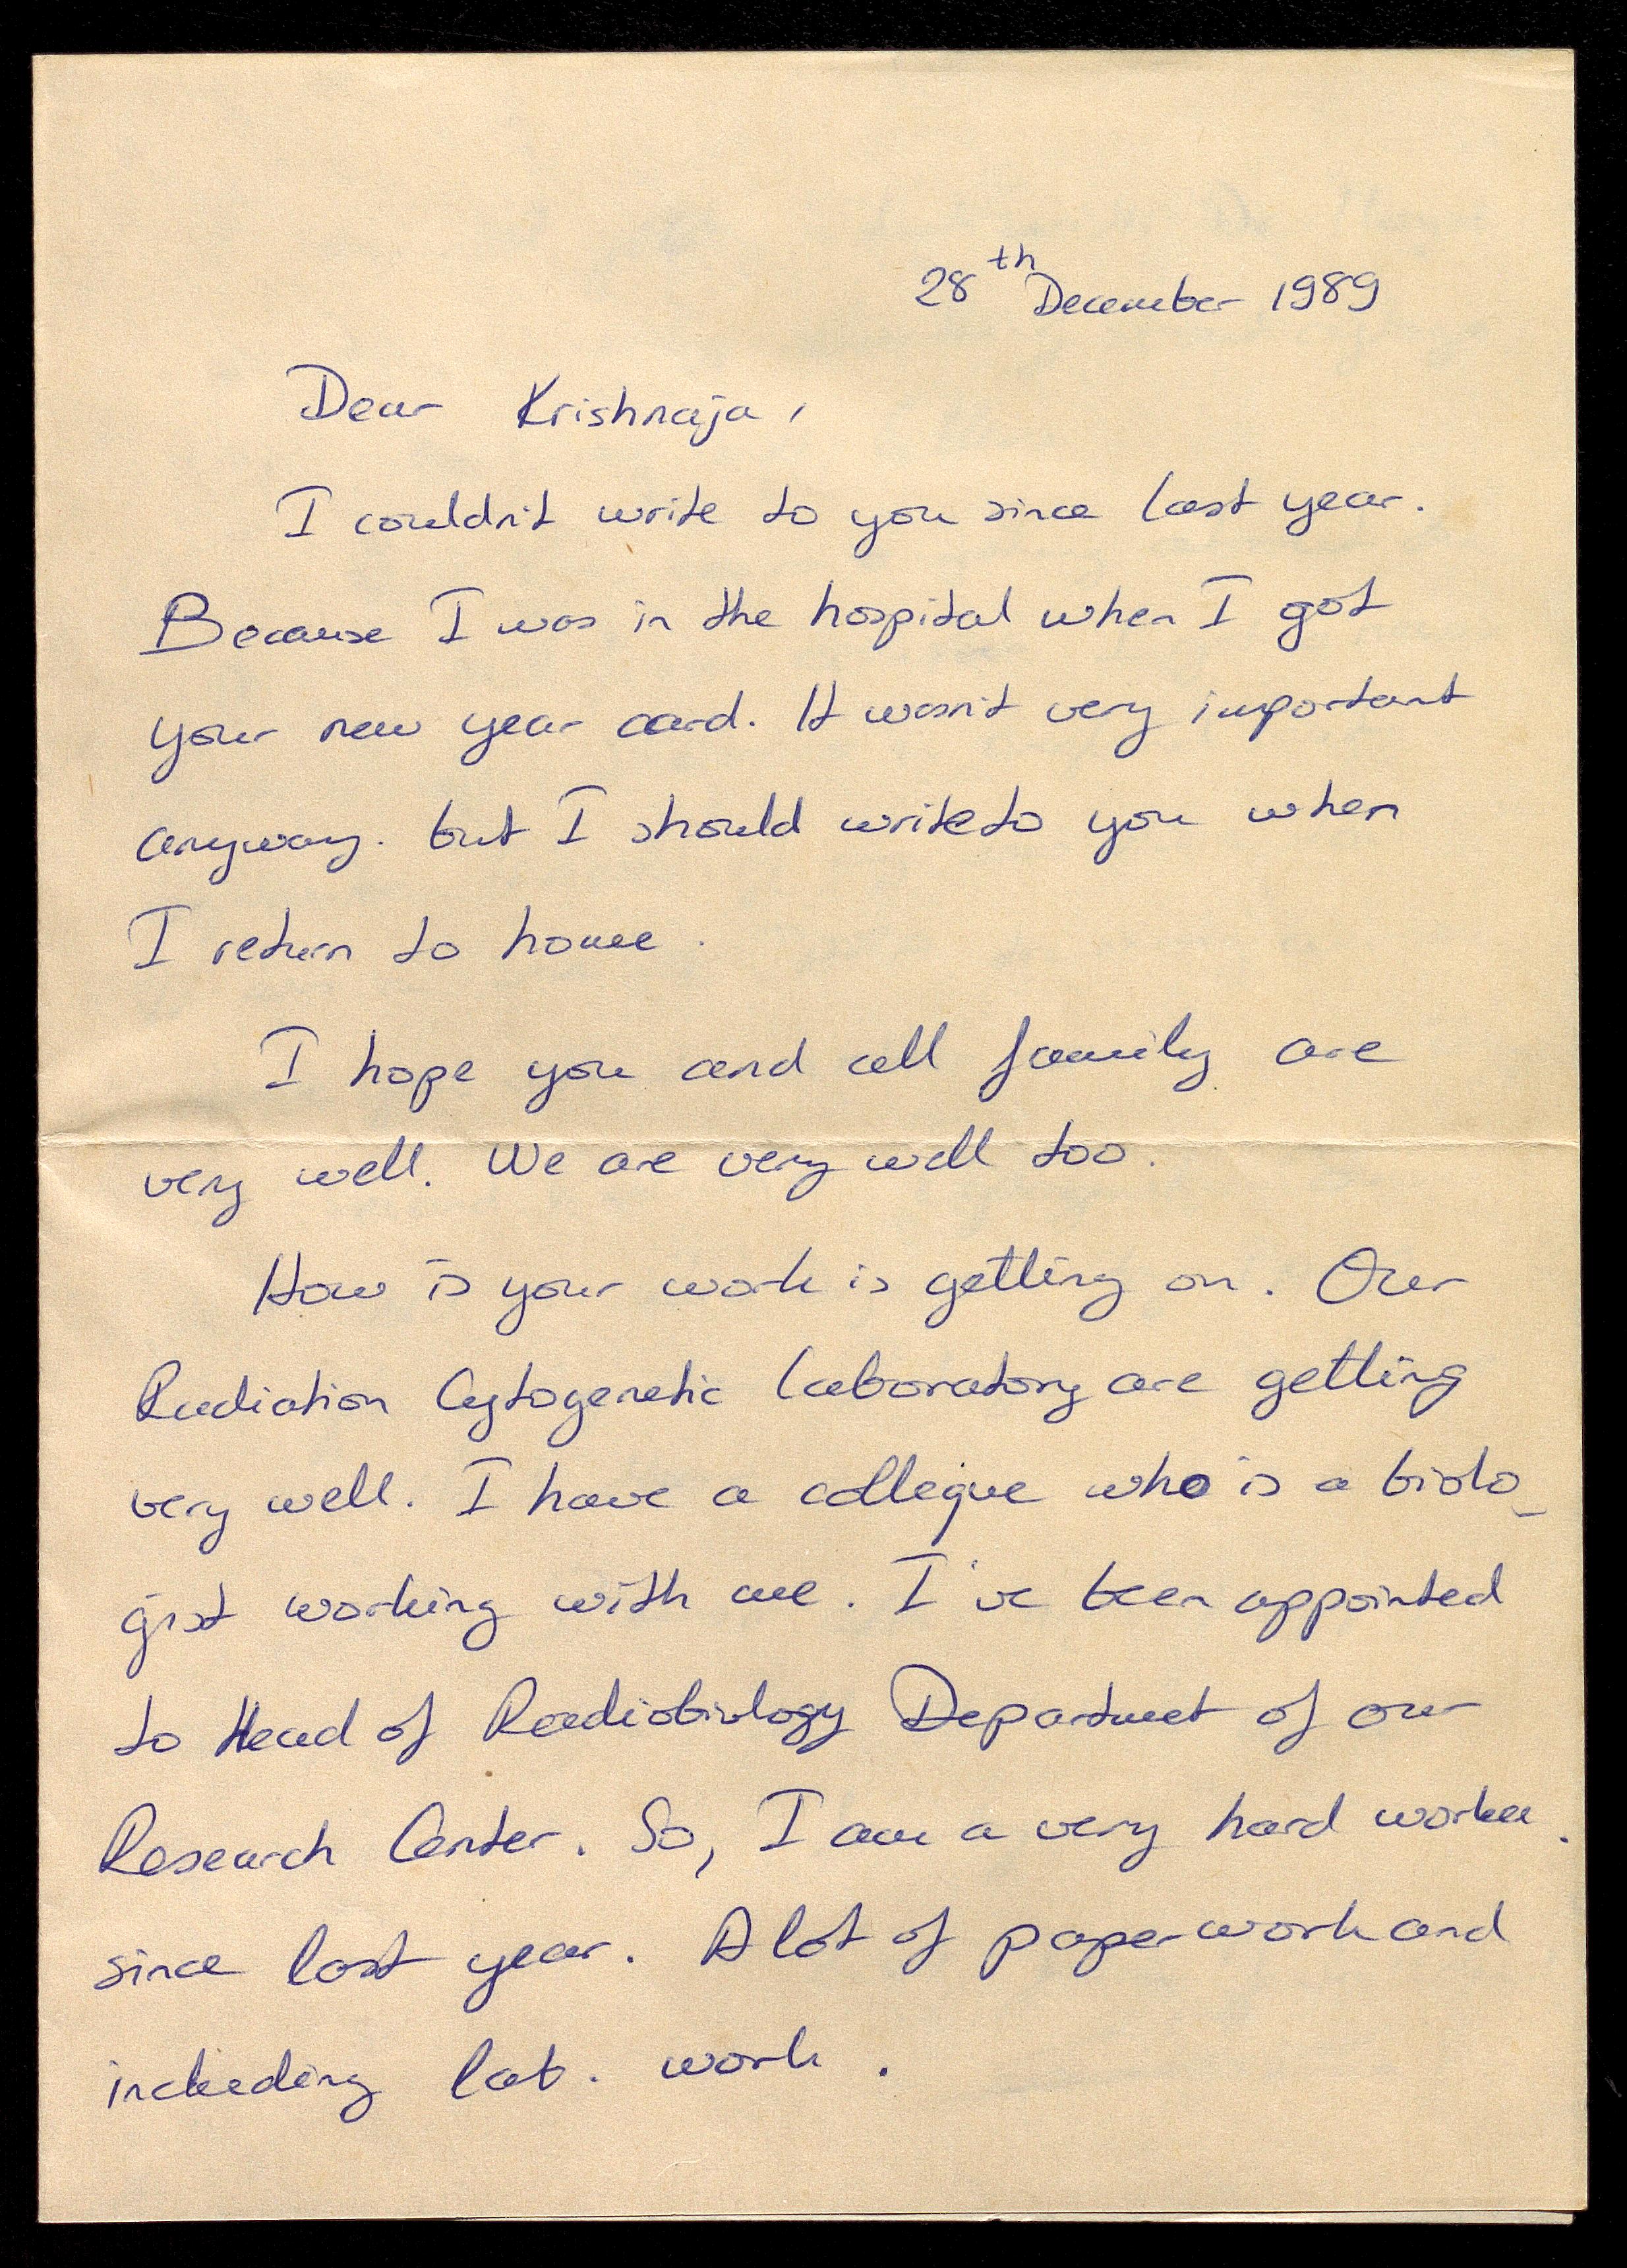 28th December 1989
Dear Krishnaja,
I couldn't write to you since last year.
Because I was in the hospital when I got
your new year card. It wasn't very important
anyway. but I should write to you when
I return to home.
I hope you and all family are
very well. We are very well too.
How is your work is getting on. Our
Radiation Cytogenetic laboratory are getting
very well. I have a collegue who is a biolo-
gist working with me. I've been appointed
to Head of Radiobiology Departmet of our
Research Center. So, I am a very hard worker.
since last year. A lot of paperwork and
including lab. work.